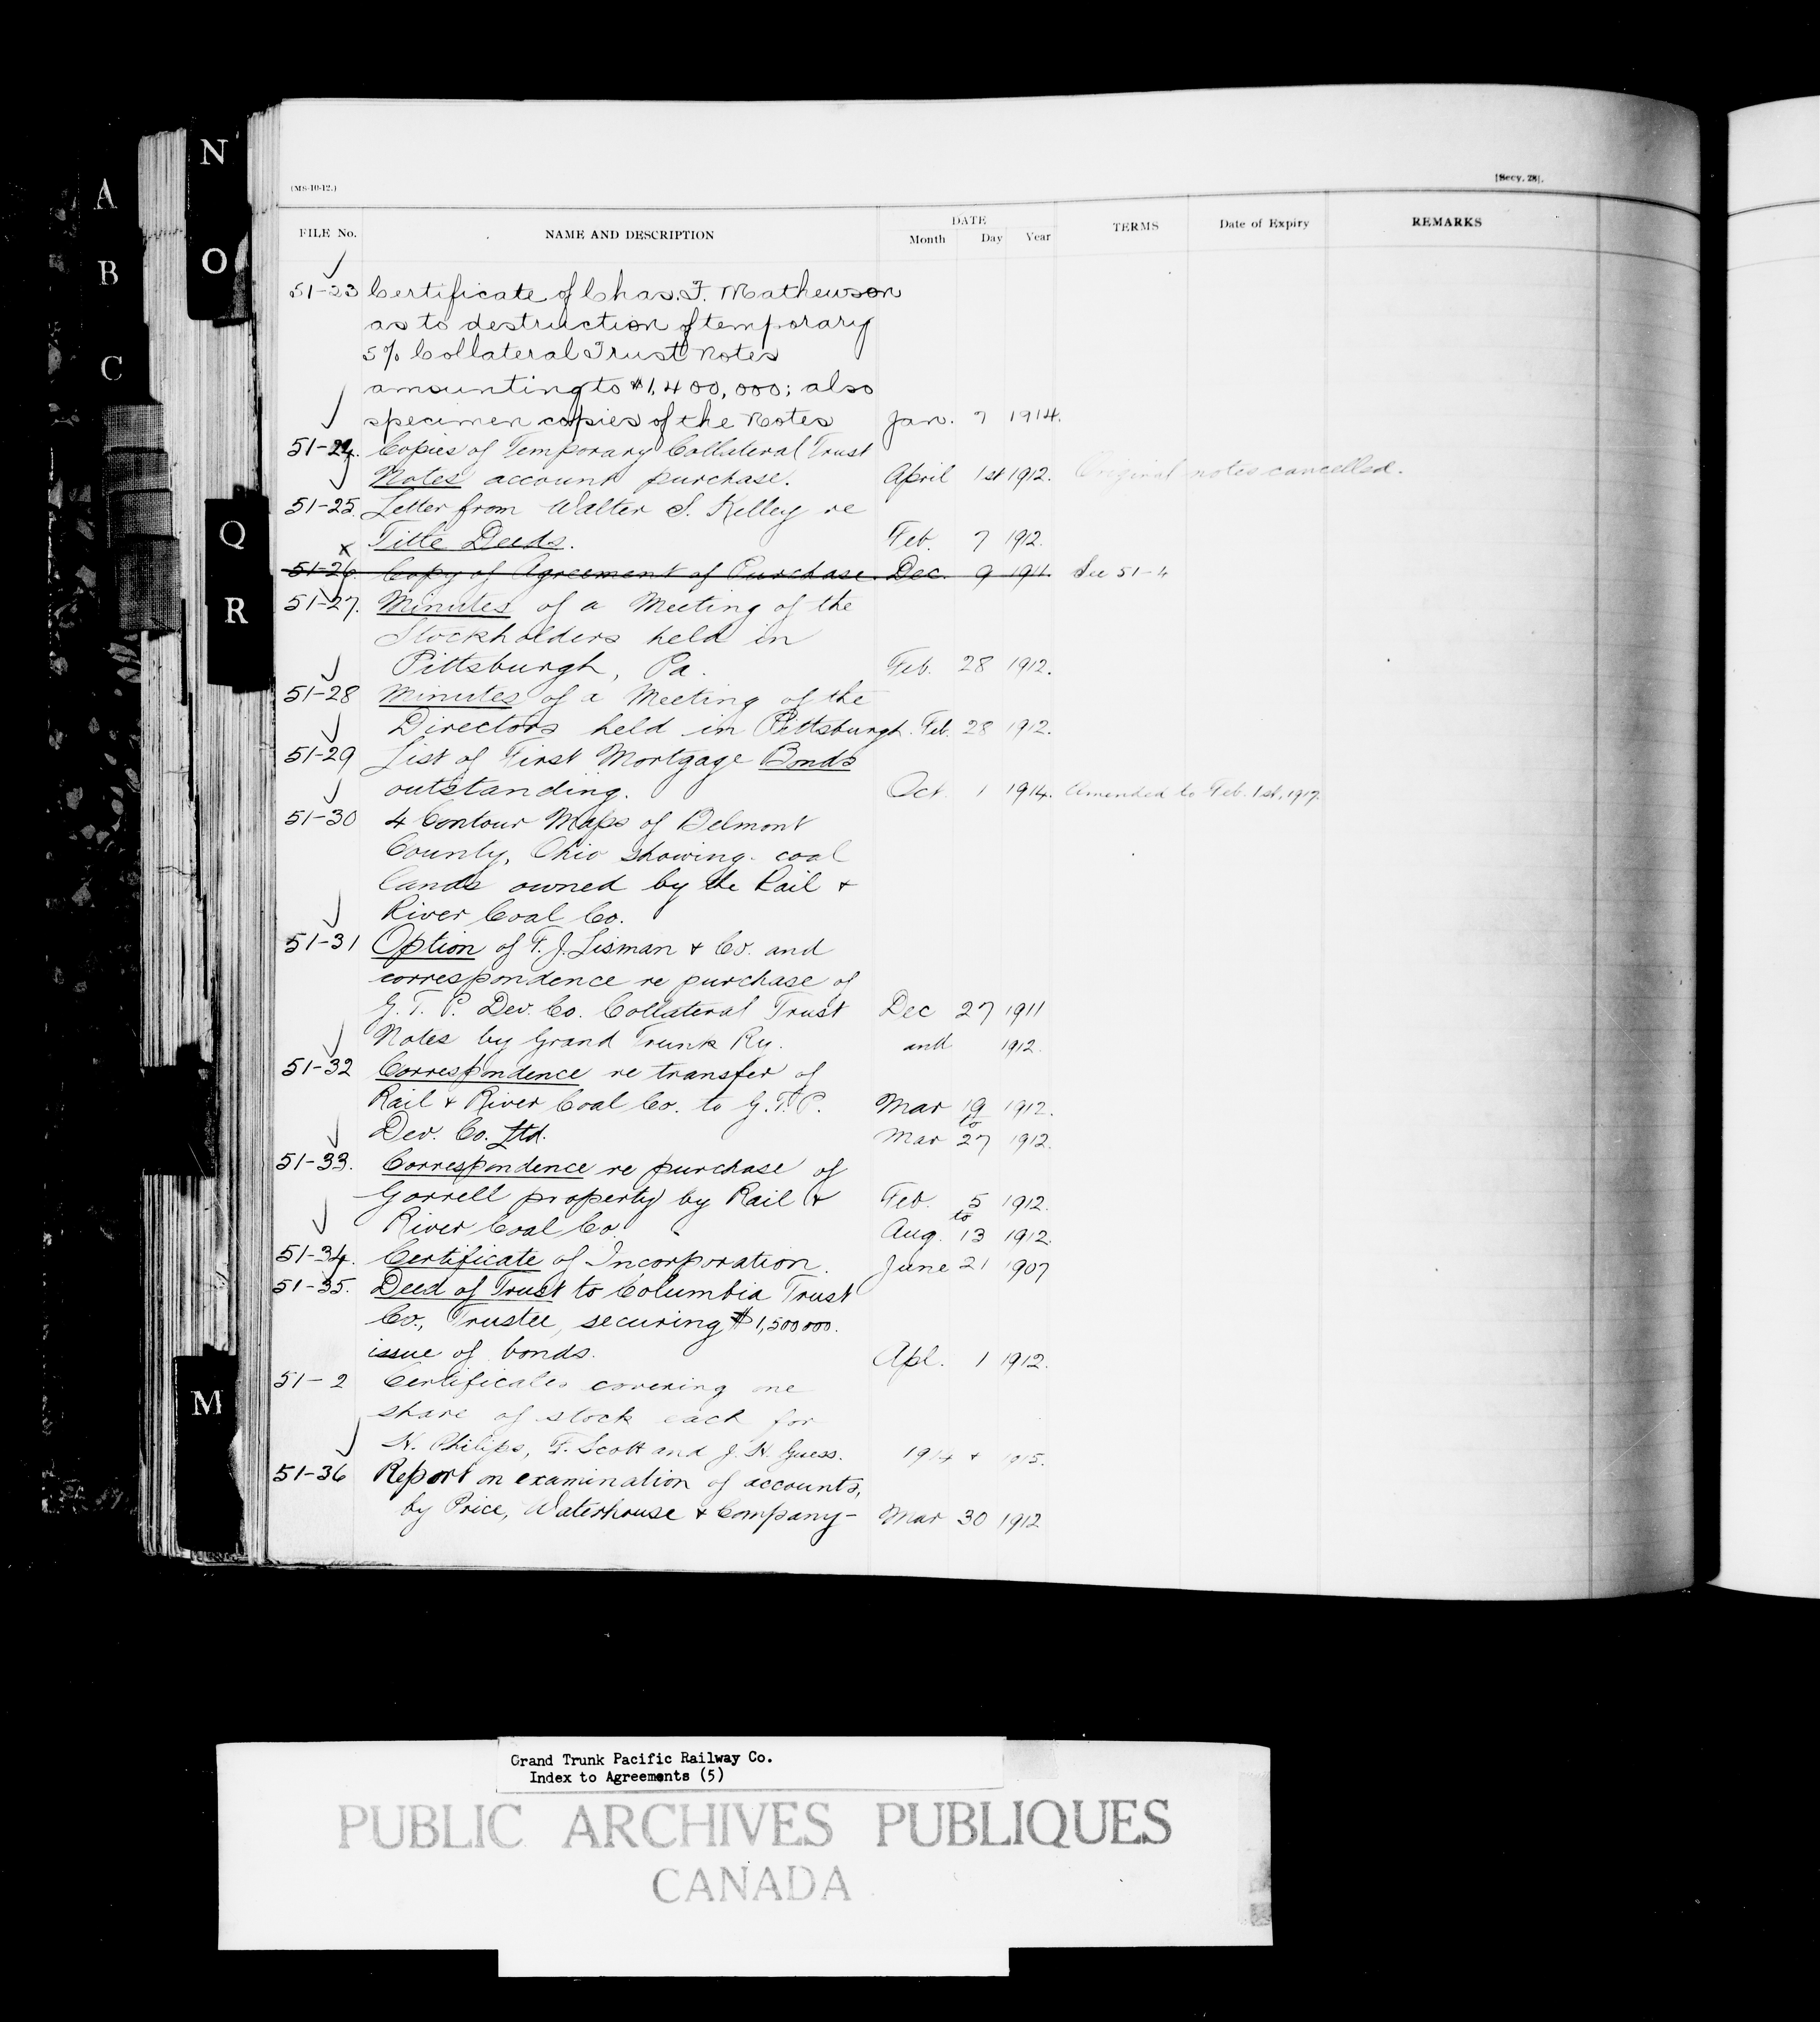 N
A
O
B
C
Q
R
M
(MS-10-12.)
[Secy. 28].
FILE No. NAME AND DESCRIPTION DATE Month Day Year TERMS Date of Expiry REMARKS
51-23 Certificate of Chas. F. Mathewson
as to destruction of temporary
5% Collateral Trust Notes
amounting to $1,400,000; also
specimen copies of the Notes Jan. 7 1914.
51-24. Copies of Temporary Collateral Trust
Notes account purchase. April 1st 1912. Original notes cancelled.
51-25. Letter from Walter S. Kelley re
Title Deeds. Feb. 7 1912.
51-26. Copy of Agreement of Purchase. Dec. 9 1911. See 51-4
51-27. Minutes of a Meeting of the
Stockholders held in
Pittsburgh, Pa. Feb. 28 1912.
51-28 Minutes of a Meeting of the
Directors held in Pittsburgh. Feb. 28 1912.
51-29 List of First Mortgage Bonds
outstanding. Oct. 1 1914. Amended to Feb. 1st, 1917.
51-30 4 Contour Maps of Belmont
County, Ohio showing coal
lands owned by the Rail &
River Coal Co.
51-31 Option of F. J. Lisman & Co. and
correspondence re purchase of
G. T. P. Dev. Co. Collateral Trust Dec 27 1911
Notes by Grand Trunk Ry. and 1912.
51-32 Correspondence re transfer of
Rail & River Coal Co. to G. T. P. Mar 19 1912.
to
Dev. Co. Ltd. Mar 27 1912.
51-33. Correspondence re purchase of
Gorrell property by Rail & Feb. 5 1912.
to
River Coal Co. Aug. 13 1912.
51-34. Certificate of Incorporation. June 21 1907
51-35. Deed of Trust to Columbia Trust
Co., Trustee, securing $1,500000.
issue of bonds. Apl. 1 1912.
51-2 Certificates covering one
share of stock each for
H. Philips, F. Scott and J. H. Guess. 1914 & 1915.
51-36 Report on examination of accounts,
by Price, Waterhouse & Company- Mar 30 1912
Grand Trunk Pacific Railway Co.
Index to Agreements (5)
PUBLIC ARCHIVES PUBLIQUES
CANADA